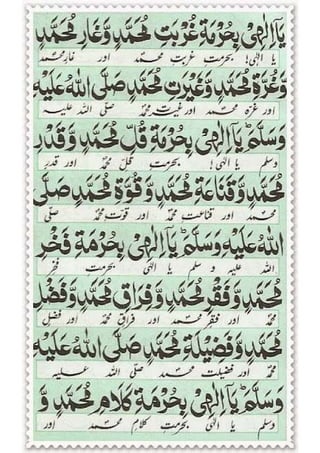 يَآ اِلٰهِىْ بِحُرْمَةِ غُرْبَتِ مُحَمَّدٍ وَّ غَارِ مُحَمَّدٍ
یا الٰہی! بحرمت غربت محمد اور غار محمد
وَّ غُرَّةِ مُحَمَّدٍ وَّ غَيْرَتِ مُحَمَّدٍ صَلَّى اللهُ عَلَيْهِ
اور غرہ محمد اور غیرت محمد صلی اللہ علیہ
وَسَلَّمَ يَآ اِلٰهِىْ بِحُرْمَةِ قُلِّ مُحَمَّدٍ وَّ قَدْرِ
وسلم یا الٰہی! بحرمت قل محمد اور قدر
مُحَمَّدٍ وَّ قَنَاعَةِ مُحَمَّدٍ وَّ قُوَّةِ مُحَمَّدٍ صَلَّى
محمد اور قناعت محمد اور قوت محمد صلی
اللهُ عَلَيْهِ وَسَلَّمَ يَآ اِلٰهِىْ بِحُرْمَةِ فَخْرِ
اللہ علیہ و سلم یا الٰہی بحرمت فخر
مُحَمَّدٍ وَّ فَقْرِ مُحَمَّدٍ وَّ فِرَاقِ مُحَمَّدٍ وَّ فَضْلِ
محمد اور فقر محمد اور فراق محمد اور فضل
مُحَمَّدٍ وَّ فَضِيْلَةِ مُحَمَّدٍ صَلَّى اللهُ عَلَيْهِ
محمد اور فضیلت محمد صلی اللہ علیہ
وَسَلَّمَ يَآ اِلٰهِىْ بِحُرْمَةِ كَلَامِ مُحَمَّدٍ وَّ
وسلم یا الٰہی بحرمت کلام محمد اور